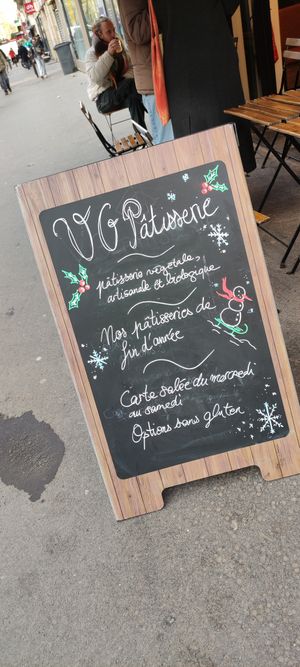 VG Pâtisserie
pâtisserie végétale
artisanale et biologique
Nos pâtisseries de
fin d'année
Carte salée du mercredi
au samedi
Options sans gluten